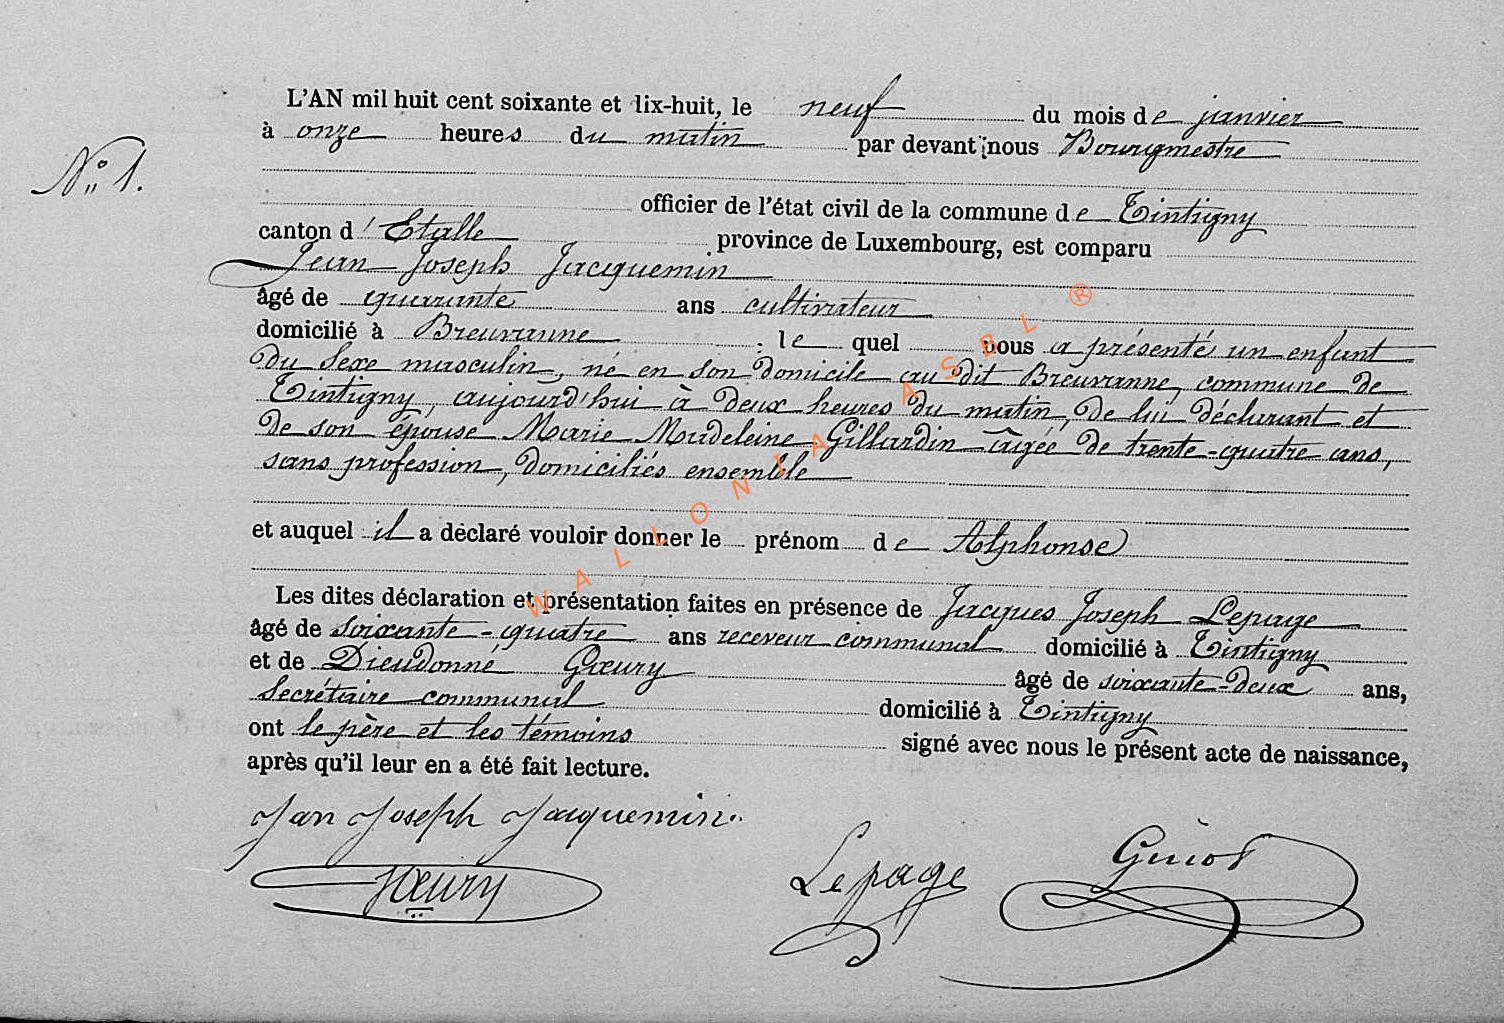 L'AN mil huit cent soixante et dix-huit, le neuf du mois de janvier
à onze heures du matin par devant nous Bourgmestre
N° 1.
officier de l'état civil de la commune de Tintigny
canton d'Etalle province de Luxembourg, est comparu
Jean Joseph Jacquemin
âgé de quarante ans cultivateur
domicilié à Breuvanne le quel nous a présenté un enfant
du sexe masculin, né en son domicile au dit Breuvanne, commune de
Tintigny, aujourd'hui à deux heures du matin, de lui déclarant et
de son épouse Marie Madeleine Gillardin âgée de trente-quatre ans,
sans profession, domiciliés ensemble
et auquel il a déclaré vouloir donner le prénom de Alphonse
Les dites déclaration et présentation faites en présence de Jacques Joseph Lepage
âgé de soixante-quatre ans receveur communal domicilié à Tintigny
et de Dieudonné Goeury âgé de soixante-deux ans,
Secrétaire communal domicilié à Tintigny
ont le père et les témoins signé avec nous le présent acte de naissance,
après qu'il leur en a été fait lecture.
Jan Joseph Jacquemin
Goeury Lepage Guiot
WALLONIA ASBL ®